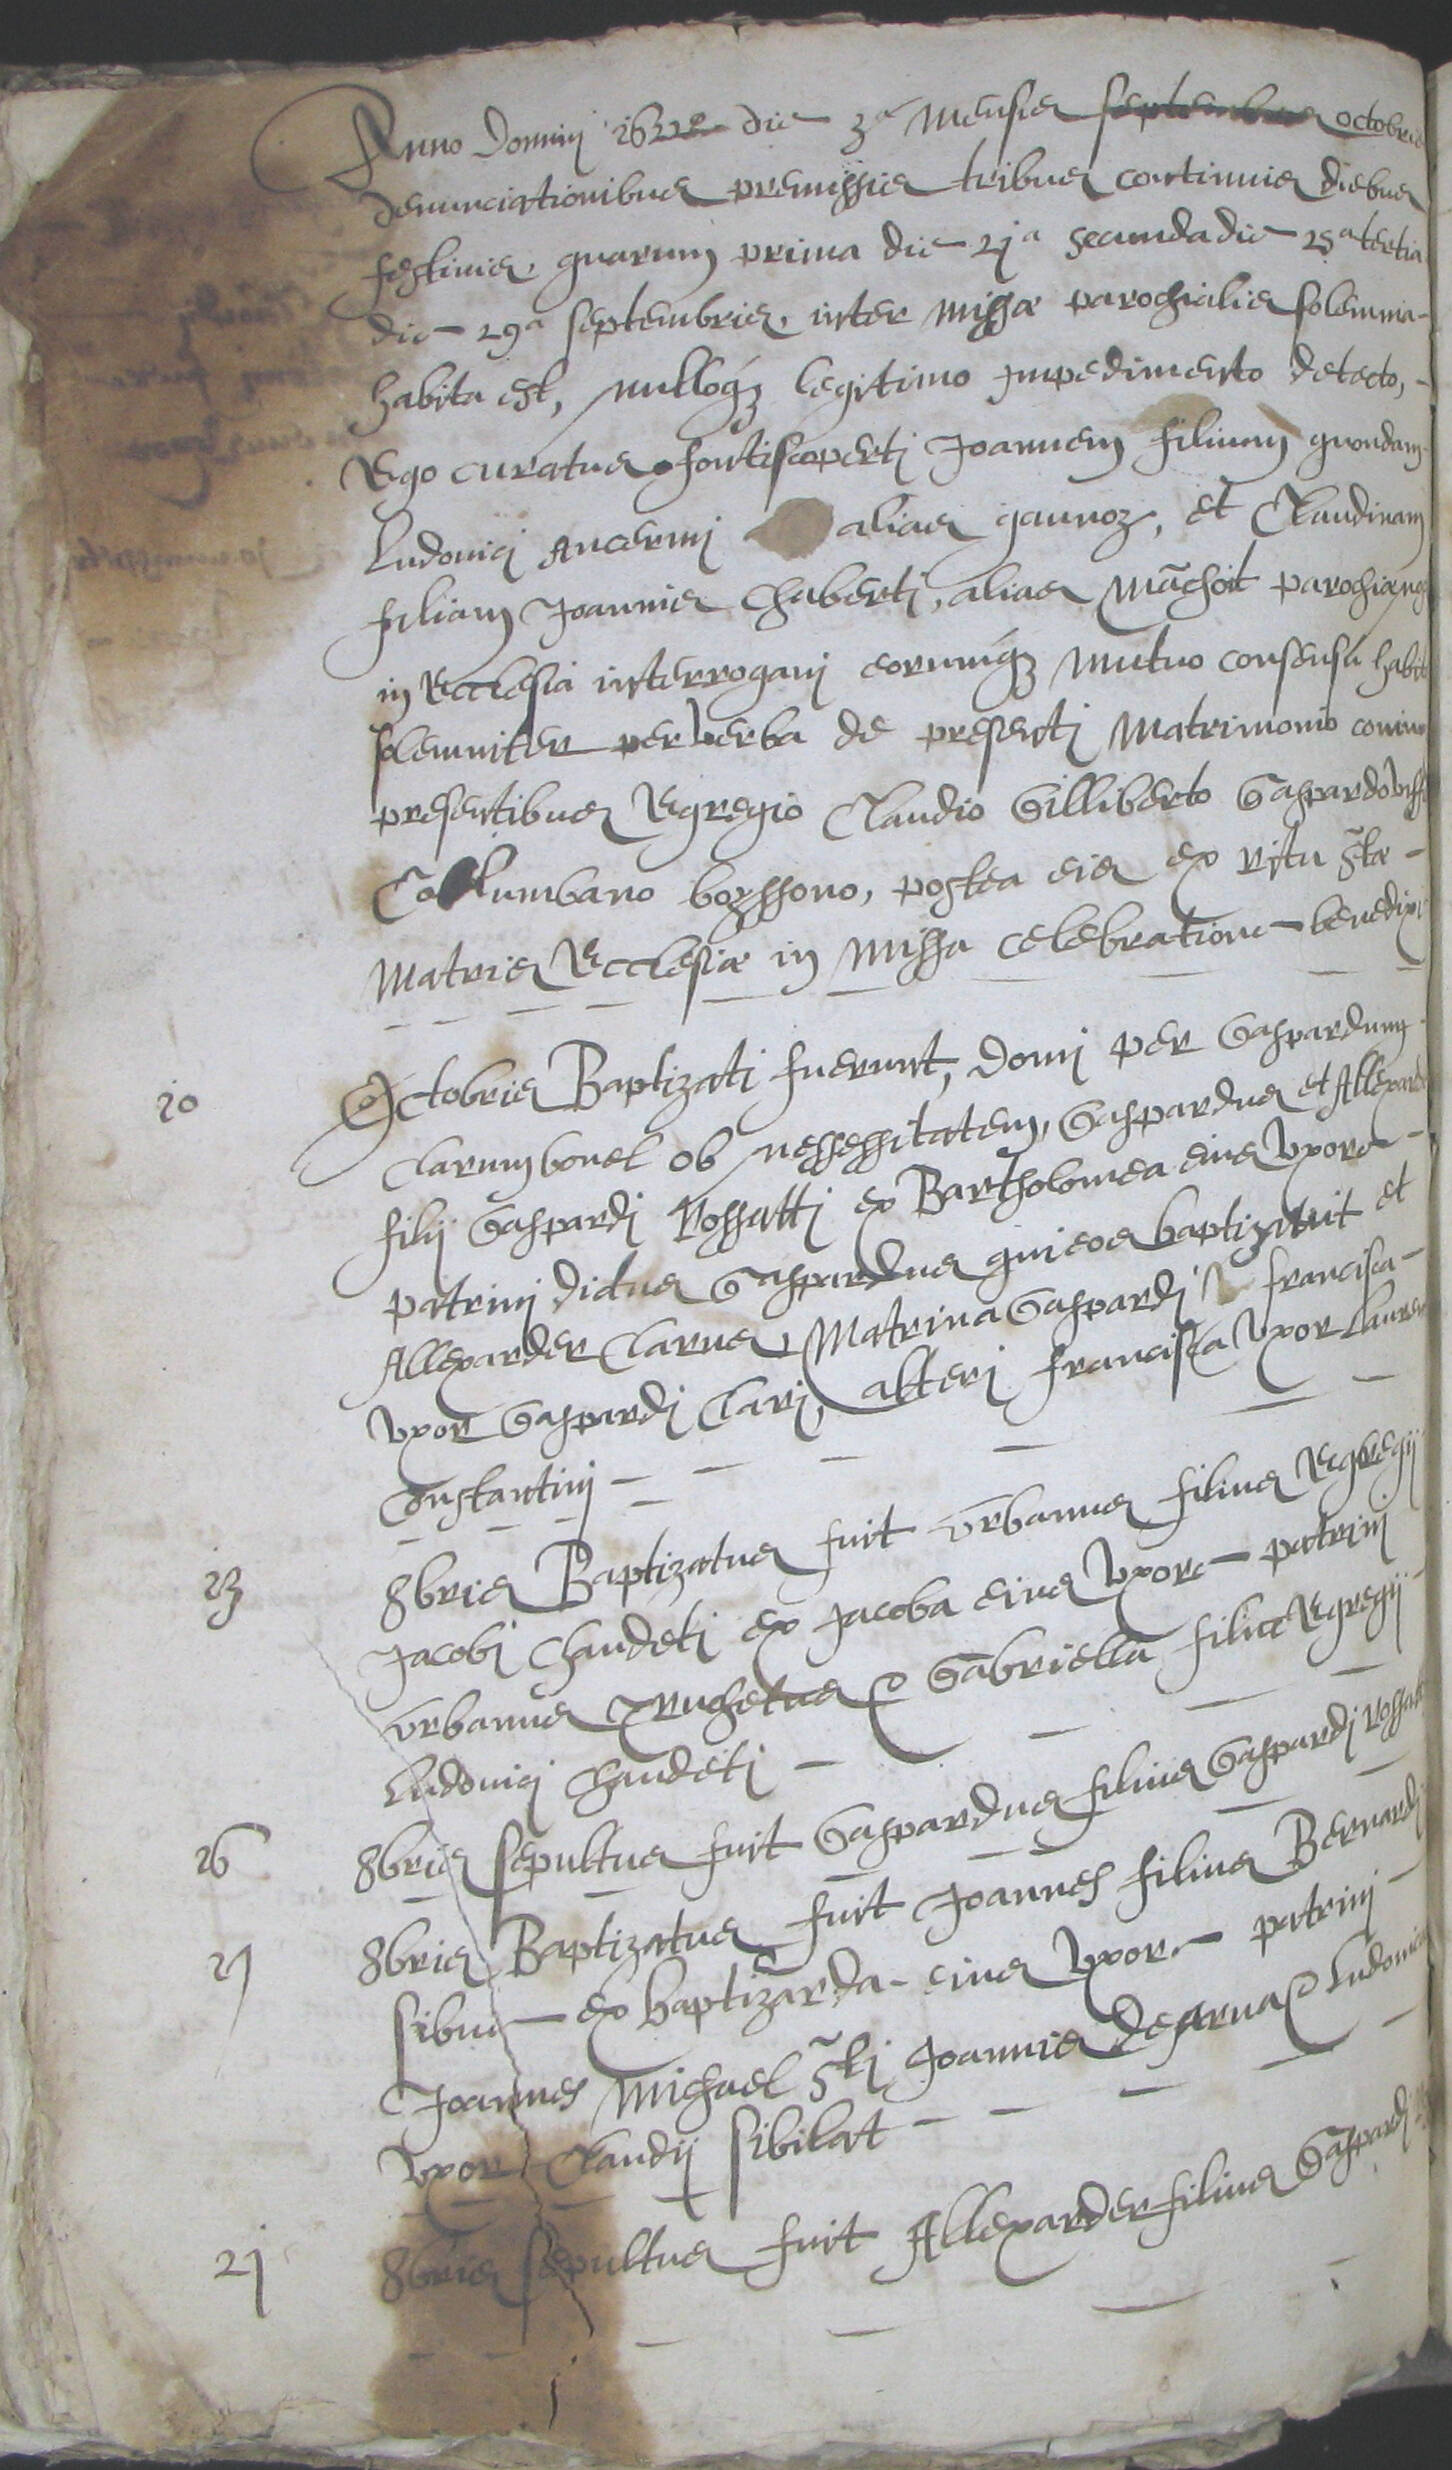 Anno Domini die 3ᵃ mensis septembris octobris
denunciationibus premissis tribus continuis diebus
festivis, quarum prima die 21ᵃ secunda die 25ᵃ tertia
die 29ᵃ septembris, inter missæ parochialis solemnia
habita est, nulloq; legitimo impedimento detecto,
Ego curatus Joannem filium quondam
Ludovici Ancermi alias et Claudinam
filiam Joannis Chaberti, alias
in Ecclesia interrogavi eorumq; mutuo consensu habito
solemniter per verba de presenti Matrimonio
presentibus Egregio Claudio Gilliberto Gaspardo
Collumbano bozssono, postea eis ex ritu Stæ
Matris Ecclesiæ in missa celebratione benedixi
10 Octobris Baptizati fuerunt, domi per Gaspardum
Clarum bonel ob nessessitatem, Gaspardus et
filii Gaspardi Rossatti ex Bartholomea eius Uxore
patrini dictus Gaspardus qui eos baptizavit et
Allexander Clarus, Matrina Gaspardi francisca
Uxor Gaspardi Clari, alteri francisca Uxor
Constantini
13 8bris Baptizatus fuit Urbanus filius Egregii
Jacobi Chaudeti ex Jacoba eius Uxore patrini
Urbanus Gabriella filia Egregii
Ludovici Chaudeti
16 8bris sepultus fuit Gaspardus filius Gaspardi Rossatti
17 8bris Baptizatus fuit Joannes filius Bernardi
ex baptizarda eius Uxore patrini
Joannes Michael Sti Joannis Ludovica
Uxor Claudii Sibilat
21 8bris sepultus fuit Allexander filius Gaspardi